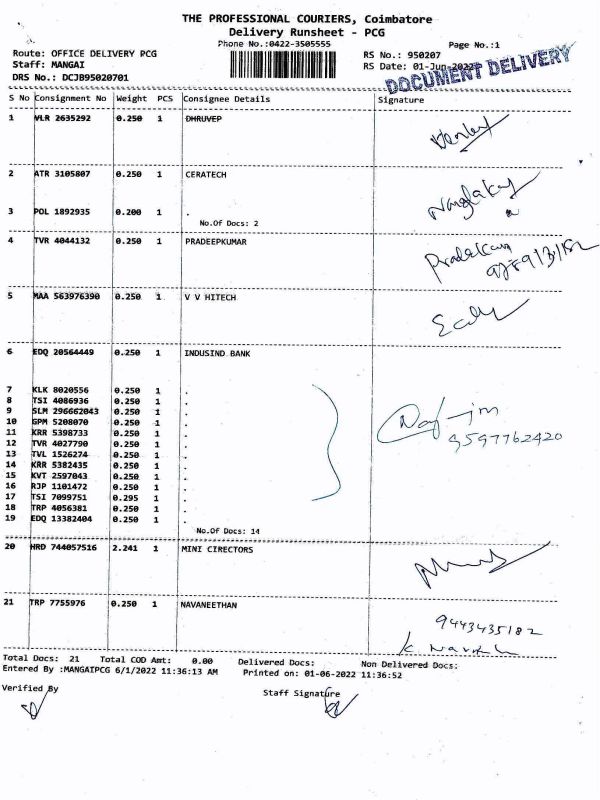 THE PROFESSIONAL COURIERS, Coimbatore
Delivery Runsheet - PCG
Phone No.:0422-3505555
Page No.:1
Route: OFFICE DELIVERY PCG
RS No.: 950207
Staff: MANGAI
RS Date: 01-Jun-2022
DRS No.: DCJB95020701
DOCUMENT DELIVERY
S No Consignment No Weight PCS Consignee Details Signature
1 VLR 2635292 0.250 1 DHRUVEP
2 ATR 3105807 0.250 1 CERATECH
3 POL 1892935 0.200 1 .
No.Of Docs: 2
4 TVR 4044132 0.250 1 PRADEEPKUMAR
5 MAA 563976390 0.250 1 V V HITECH
6 EDQ 20564449 0.250 1 INDUSIND BANK
7 KLK 8020556 0.250 1 .
8 TSI 4086936 0.250 1 .
9 SLM 296662043 0.250 1 .
10 GPM 5208070 0.250 1 .
11 KRR 5398733 0.250 1 .
12 TVR 4027790 0.250 1 .
13 TVL 1526274 0.250 1 .
14 KRR 5382435 0.250 1 .
15 KVT 2597043 0.250 1 .
16 RJP 1101472 0.250 1 .
17 TSI 7099751 0.295 1 .
18 TRP 4056381 0.250 1 .
19 EDQ 13382404 0.250 1 .
9597762420
No.Of Docs: 14
20 HRD 744057516 2.241 1 MINI CIRECTORS
21 TRP 7755976 0.250 1 NAVANEETHAN
9443435182
Total Docs: 21 Total COD Amt: 0.00 Delivered Docs: Non Delivered Docs:
Entered By :MANGAIPCG 6/1/2022 11:36:13 AM Printed on: 01-06-2022 11:36:52
Verified By Staff Signature